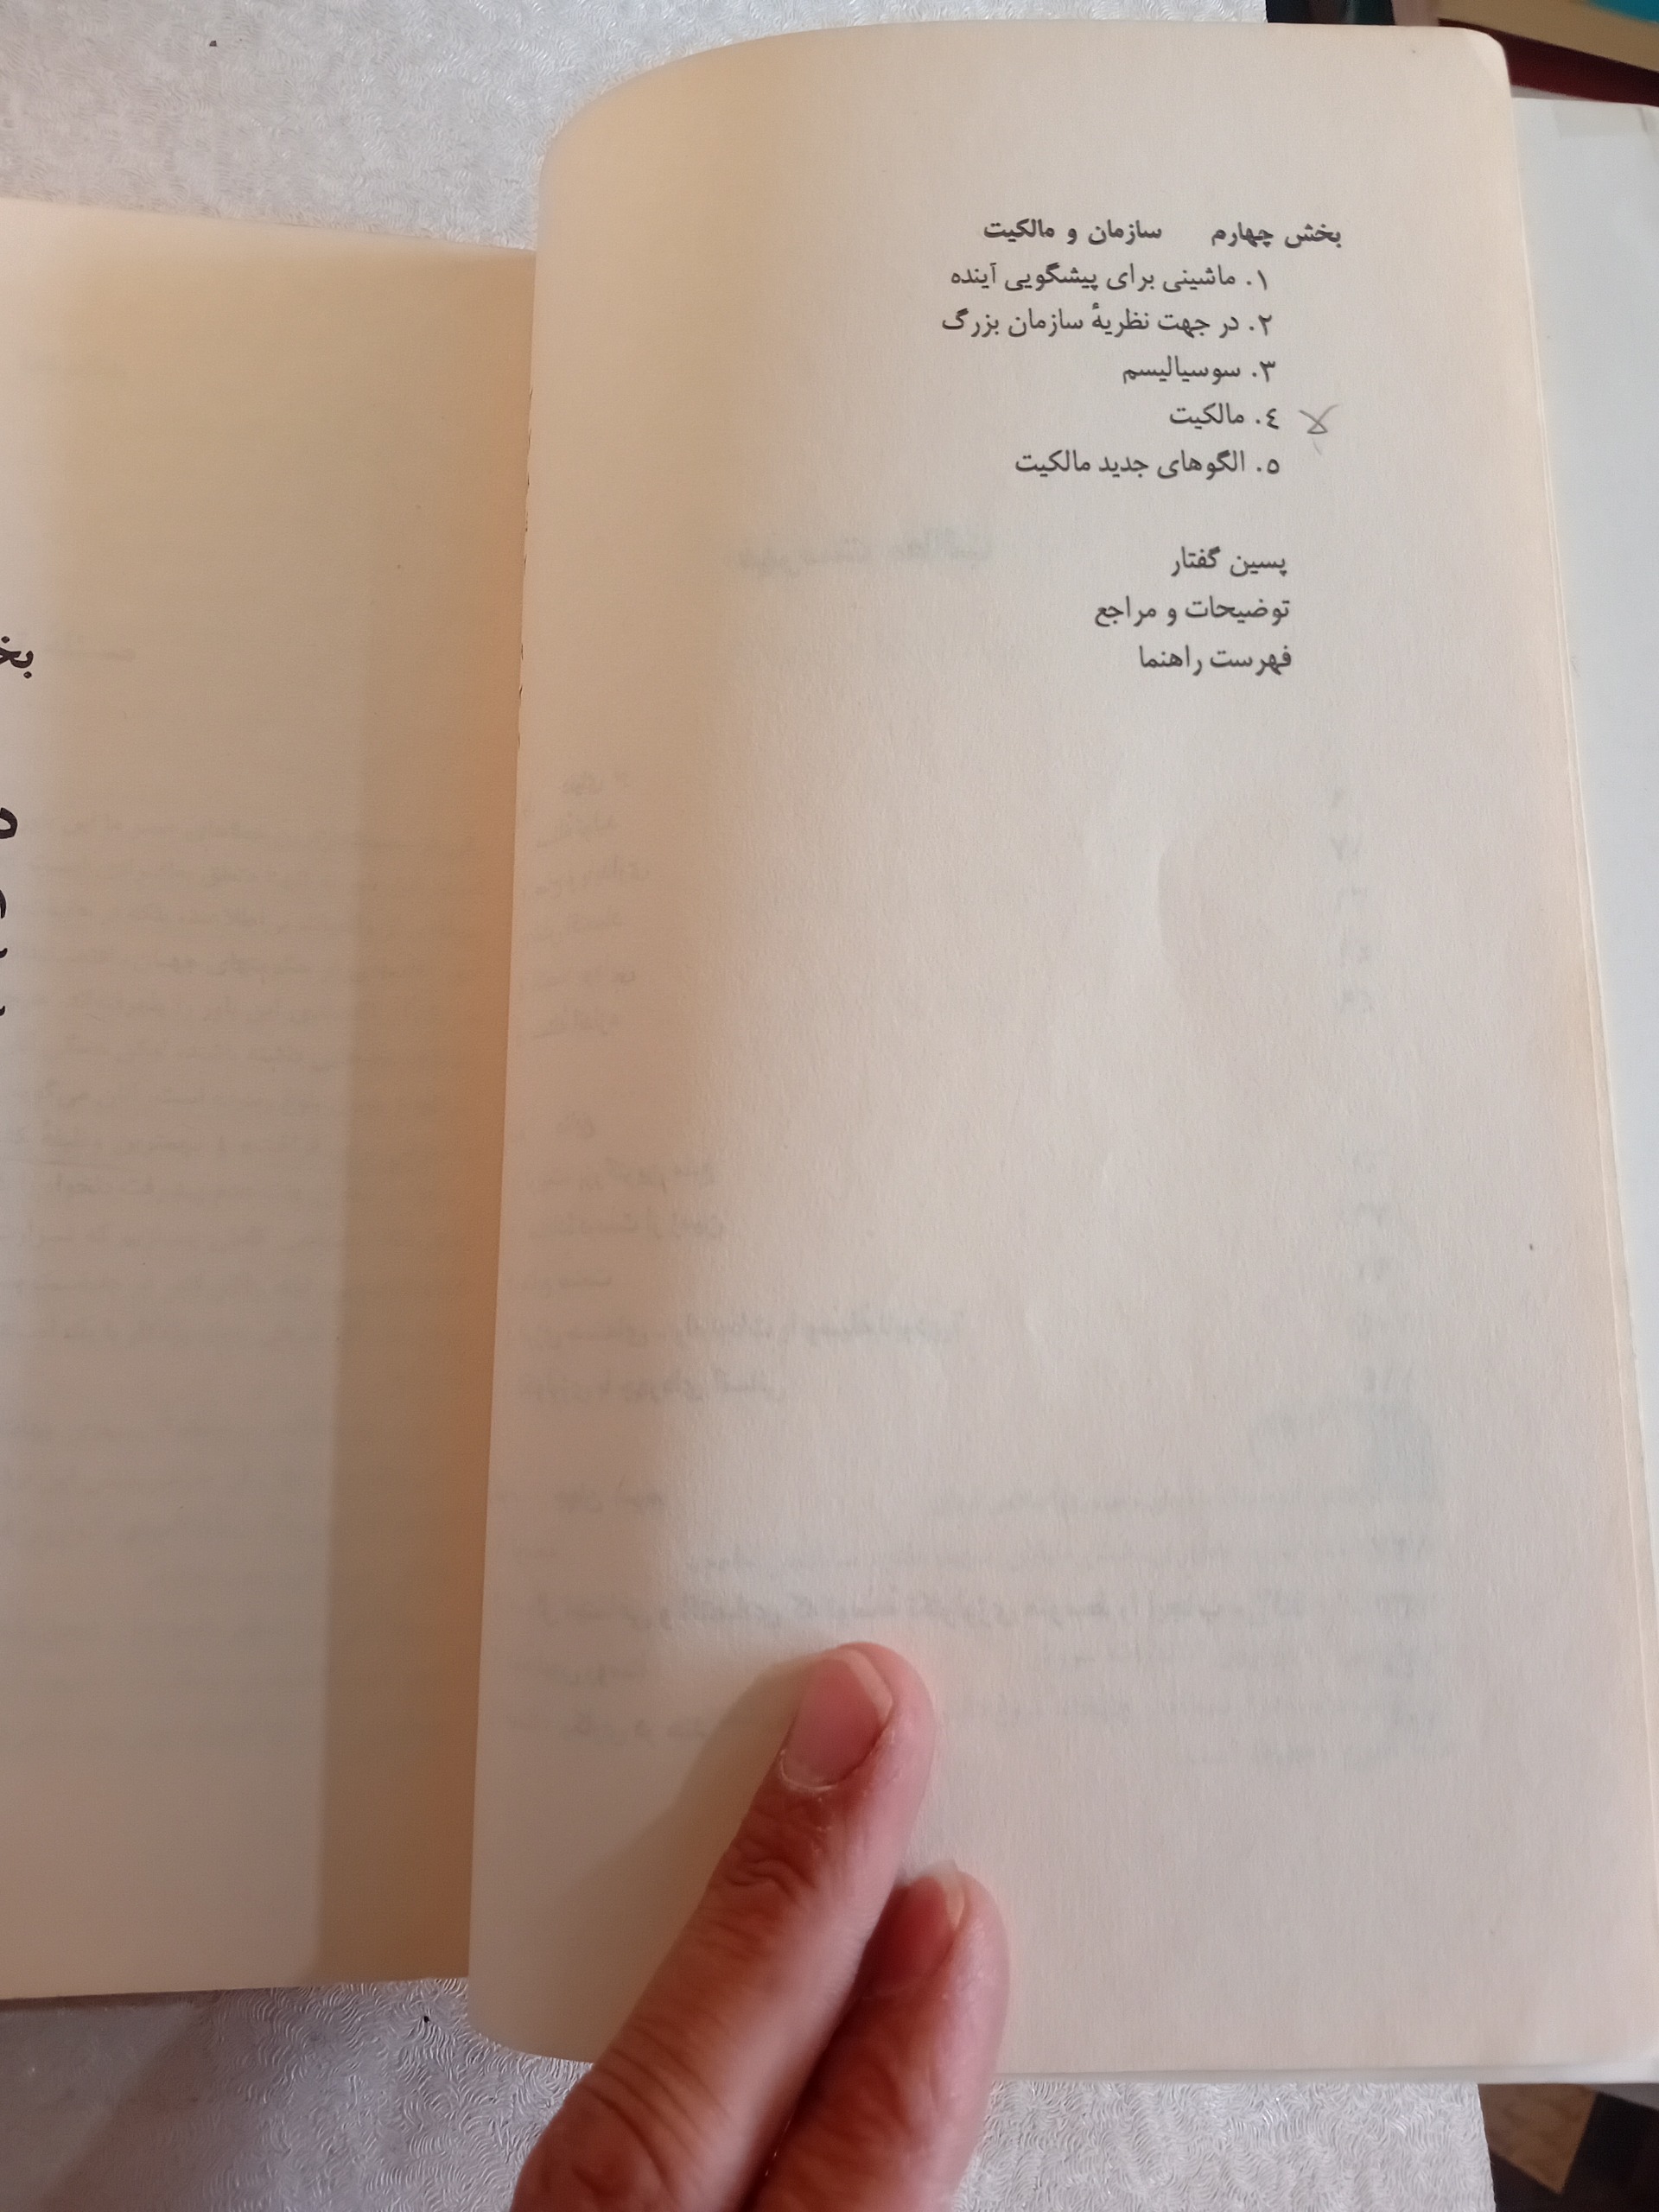 بخش چهارم سازمان و مالکیت
۱. ماشینی برای پیشگویی آینده
۲. در جهت نظریهٔ سازمان بزرگ
۳. سوسیالیسم
٤. مالکیت
۵. الگوهای جدید مالکیت
پسین گفتار
توضیحات و مراجع
فهرست راهنما